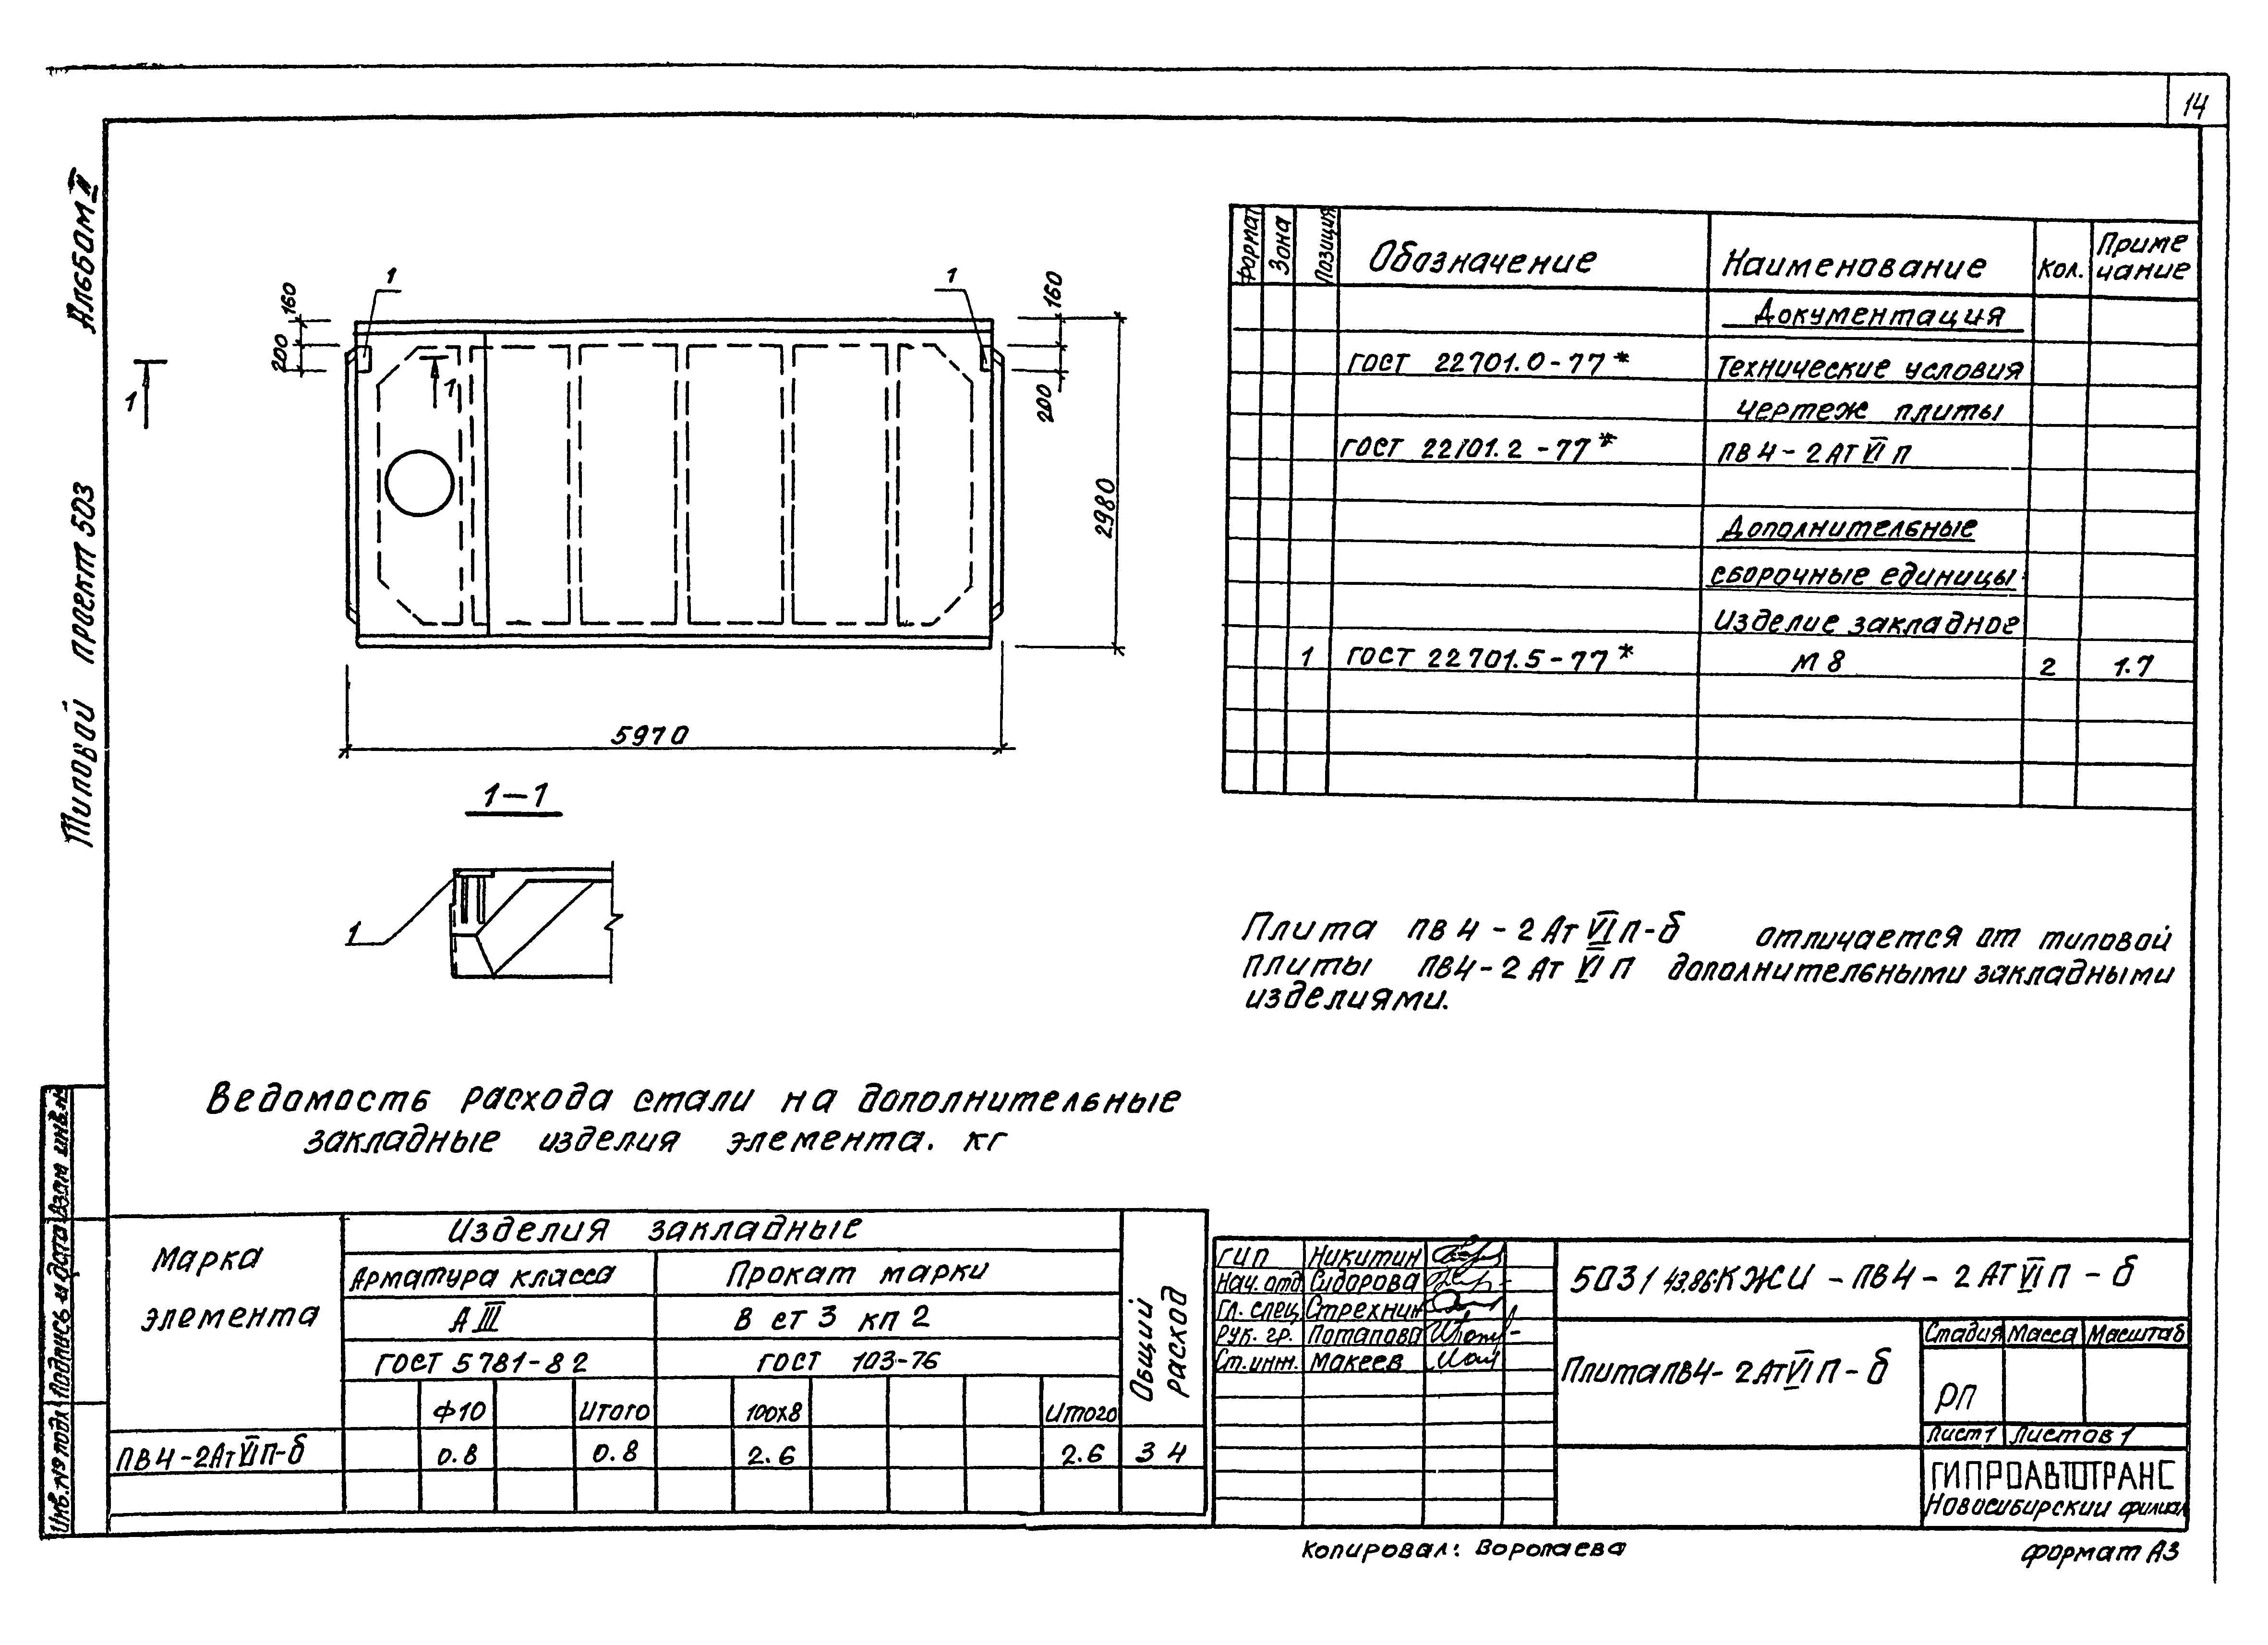 14
Альбом II
Типовой проект 503
1
1
160
200
160
200
1
1
2980
5970
1-1
1
Формат
Зона
Позиция
Обозначение
Наименование
Кол.
Приме
чание
Документация
ГОСТ 22701.0-77* Технические условия
Чертеж плиты
ГОСТ 22701.2-77* ПВ4-2АтVIП
Дополнительные
сборочные единицы
Изделие закладное
1 ГОСТ 22701.5-77* М8 2 1.7
Плита ПВ4-2АтVIП-б отличается от типовой
плиты ПВ4-2АтVIП дополнительными закладными
изделиями.
Ведомость расхода стали на дополнительные
закладные изделия элемента. кг
Марка
элемента
Изделия закладные
Общий
расход
Арматура класса
Прокат марки
А III
В ст 3 кп 2
ГОСТ 5781-82
ГОСТ 103-76
Ф10 Итого 100х8 Итого
ПВ4-2АтVIП-б 0.8 0.8 2.6 2.6 3 4
ГИП Никитин
Нач. отд Сидорова
Гл. спец Стрехнин
Рук. гр. Потапова
Ст.инж. Макеев
503/43.86-КЖИ-ПВ4-2АтVIП-б
Плита ПВ4-2АтVIП-б
Стадия Масса Масштаб
РП
Лист 1 Листов 1
ГИПРОАВТОТРАНС
Новосибирский филиал
Инв. № подл
Подпись и дата
Взам инв. №
Копировал: Воропаева
формат А3